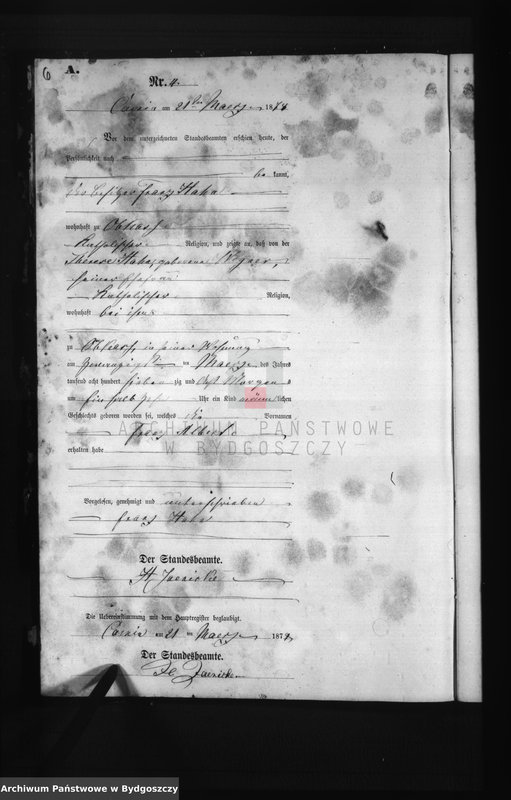 6
A.
Nr. 4.
am 21ten Maerz 1878
Vor dem unterzeichneten Standesbeamten erschien heute, der
Persönlichkeit nach
be kannt,
der Besitzer Franz Hahn
wohnhaft zu
Katholischer Religion, und zeigte an, daß von der
Therese Hahn, geborene
seiner Ehefrau
Katholischer Religion,
wohnhaft bei ihm
zu in seiner Wohnung
am ten Maerz des Jahres
tausend acht hundert sieben zig und acht Morgens
um Uhr ein Kind männlichen
Geschlechts geboren worden sei, welches die Vornamen
Franz Albert
erhalten habe
Vorgelesen, genehmigt und unterschrieben
Franz Hahn
Der Standesbeamte.
Jaenicke
Die Uebereinstimmung mit dem Hauptregister beglaubigt.
am 21 ten Maerz 1878
Der Standesbeamte.
Jaenicke
ARCHIWUM PAŃSTWOWE
W BYDGOSZCZY
Archiwum Państwowe w Bydgoszczy